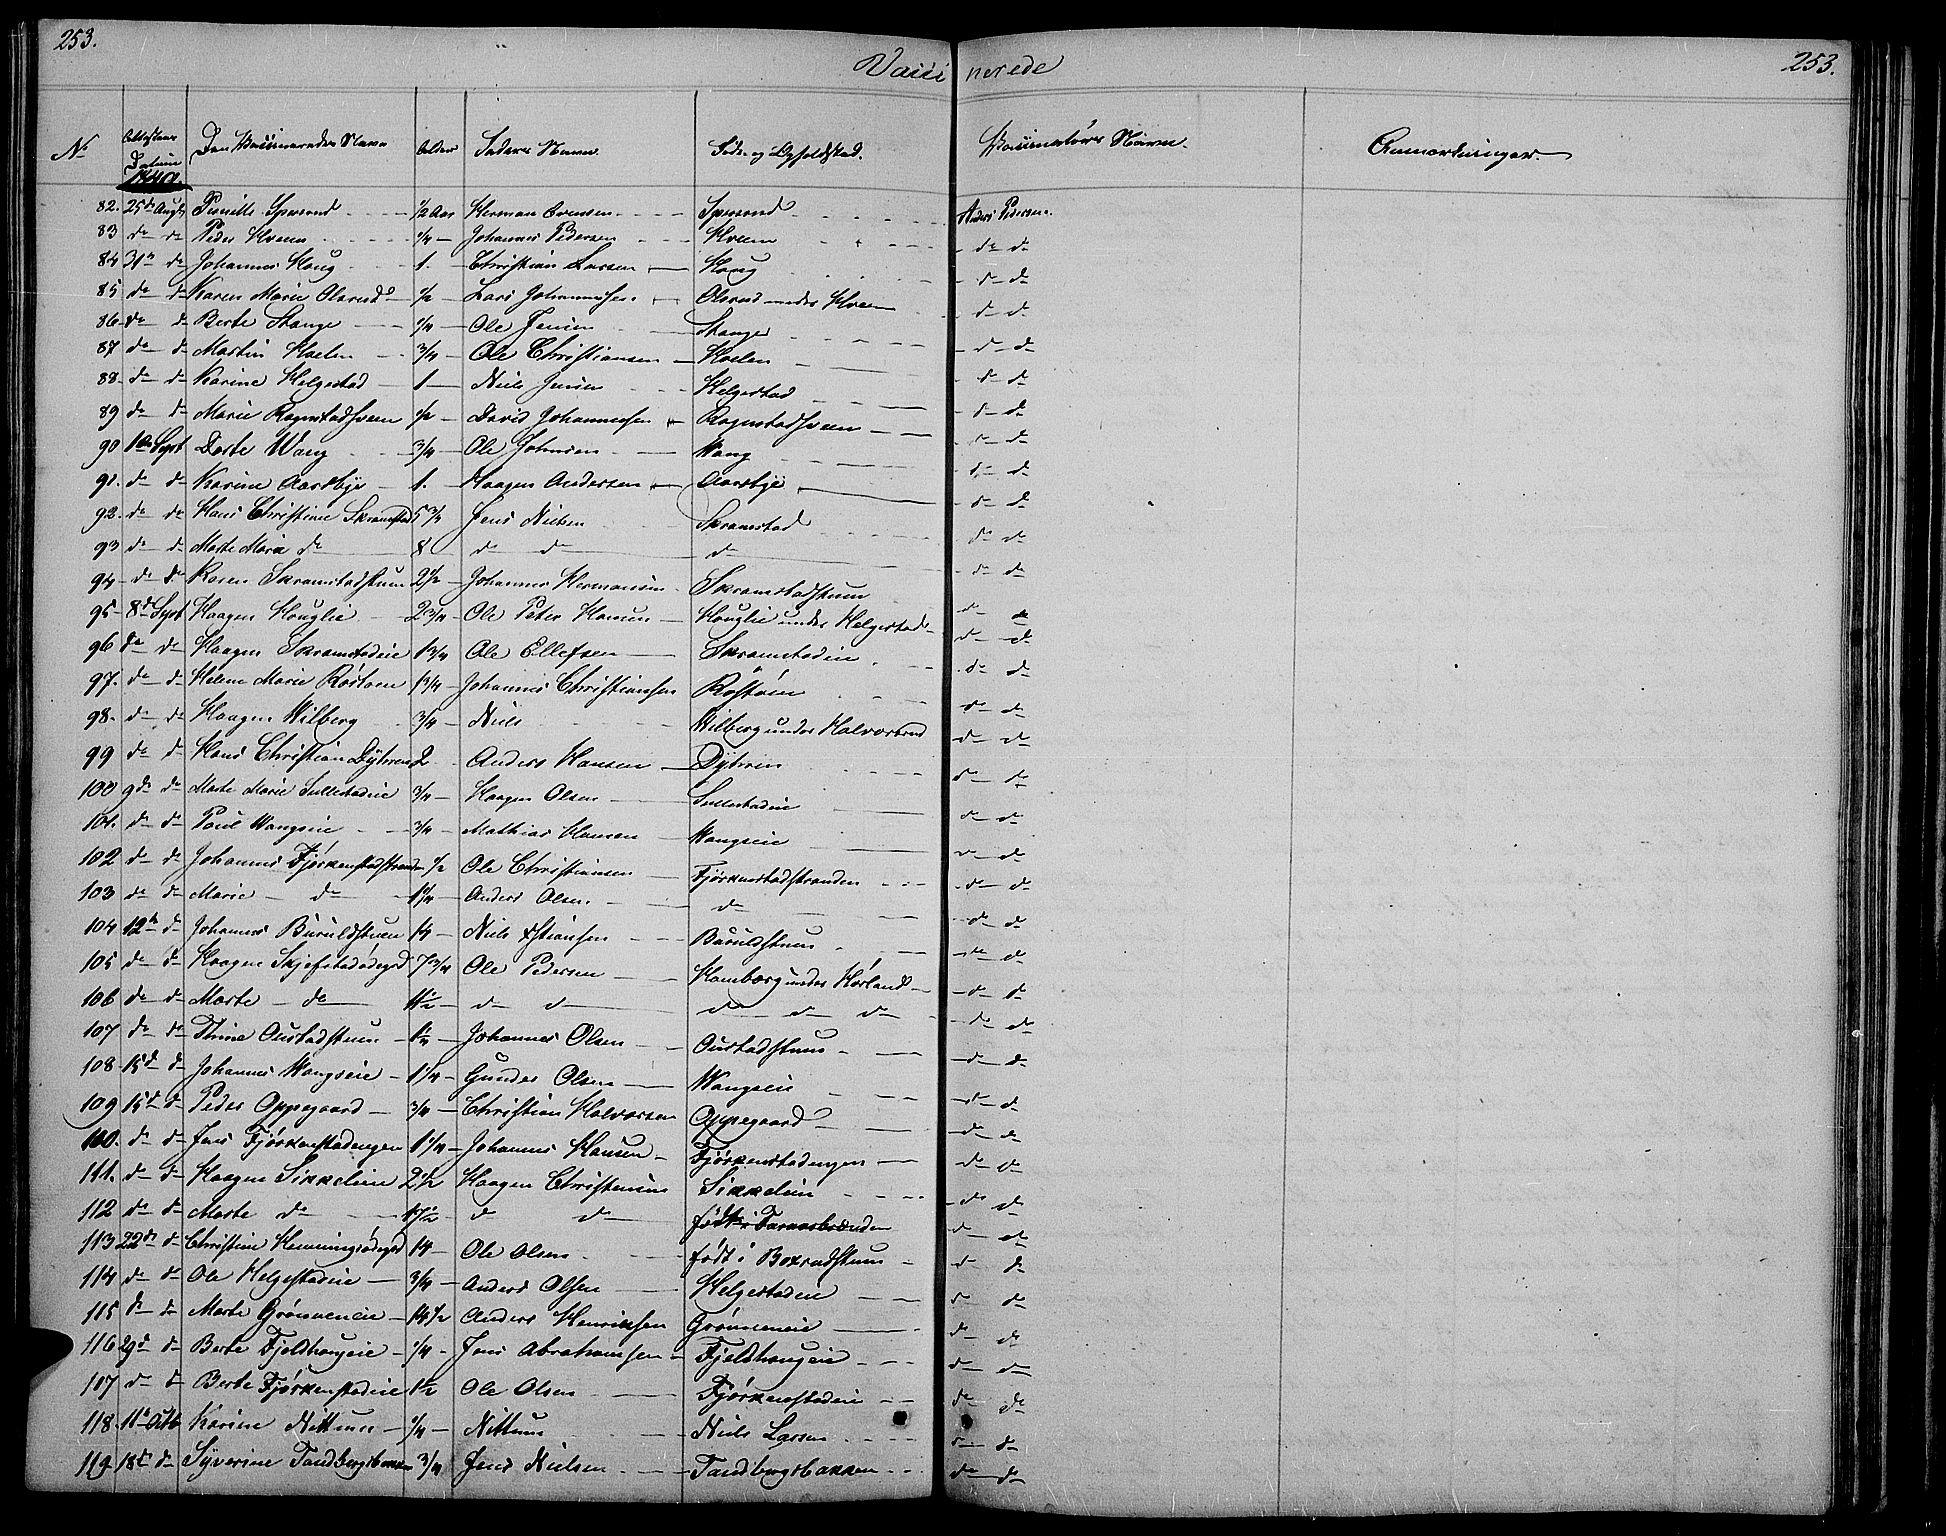 253.
Vacci nerede
253.
No Attestens Datum Den Vaccineredes Navn Alder Faders Navn Føde- og Opholdsted. Vaccinatørs Navn. Anmærkninger.
82. 25de Augt Pernille Spersrud ½ Aar Herman Evensen Spersrud Anders Pedersen
83 do do Peder Hveem ¼ Johannes Pedersen Hveem do do
84 31te do Johannes Houg 1. Christian Larsen Houg do do
85 do do Karen Marie Olsrud ½ Lars Johannesen Olsrud under Hveem do do
86 do do Berte Stange ¼ Ole Jensen Stange do do
87 do do Martin Hoelen ¾ Ole Christiansen Hoelen do do
88 do do Karine Helgestad 1 Niels Jensen Helgestad do do
89 do do Marie Rognstadsveen ½ David Johannesen Rognstadsveen do do
90 1ste Sept Dorte Wang ¾ Ole Johnsen Wang do do
91. do do Karine Aarsbye 1. Haagen Andersen Aarsbye do do
92. do do Hans Christian Skramstad 5¾ Jens Nielsen Skramstad do do
93 do do Marte Marie do 8 do do do do do
94 do do Karen Skramstadstuen 2½ Johannes Hermansen Skramstadstuen do do
95 8de Sept Haagen Houglie 2¾ Ole Peter Hansen Houglie under Helgestad do do
96 do do Haagen Skramstadeie 1¾ Ole Ellefsen Skramstadeie do do
97. do do Helene Marie Røstøen 1¾ Johannes Christiansen Røstøen do do
98. do do Haagen Wilberg ¾ Niels Wilberg under Halvorsrud do do
99 do do Hans Christian Dytveen 2 Anders Hansen Dytveen do do
100 9de do Marte Marie Sullestadeie ¾ Haagen Olsen Sullestadeie do do
101. do do Poul Wangseie ¾ Mathias Hansen Wangseie do do
102 do do Johannes Fjørkenstadstranden ½ Ole Christiansen Fjørkenstadstranden do do
103 do do Marie do 1¼ Anders Olsen do do do
104 12te do Johannes Buruldstuen 14 Niels Xstiansen Buruldstuen do do
105 do do Haagen Skjefstadødegrd 7¾ Ole Pedersen Homborg under Hørland do do
106 do do Marte do 11½ do do do do do do do
107 do do Thrine Oustadstuen 1½ Johannes Olsen Oustadstuen do do
108 15de do Johannes Wangseie 1¼ Gunder Olsen Wangseie do do
109 15de do Peder Oppegaard ¾ Christian Halvorsen Oppegaard do do
110. do do Jens Fjørkenstadengen 1¼ Johannes Hansen Fjørkenstadengen do do
111. do do Haagen Sikkeleie 2½ Haagen Christensen Sikkeleie do do
112 do do Marte do 17½ do do født i do do
113 22de do Christian Henningsødegrd 14 Ole Olsen født i Boxrudstuen do do
114 do do Ole Helgestadeie ¾ Anders Olsen Helgestadeie do do
115 do do Marte Grønveneie 14½ Anders Henriksen Grønveneie do do
116 29de do Berte Fjeldhougeie ¼ Jens Abrahamsen Fjeldhougeie do do
117 do do Berte Fjørkenstadeie 1½ Ole Olsen Fjørkenstadeie do do
118. 11te Octb Karine Nittum ¼ Nittum Niels Larsen do do
119 18de do Syverine Tandbergsbakken ¾ Jens Nielsen Tandbergsbakken do do